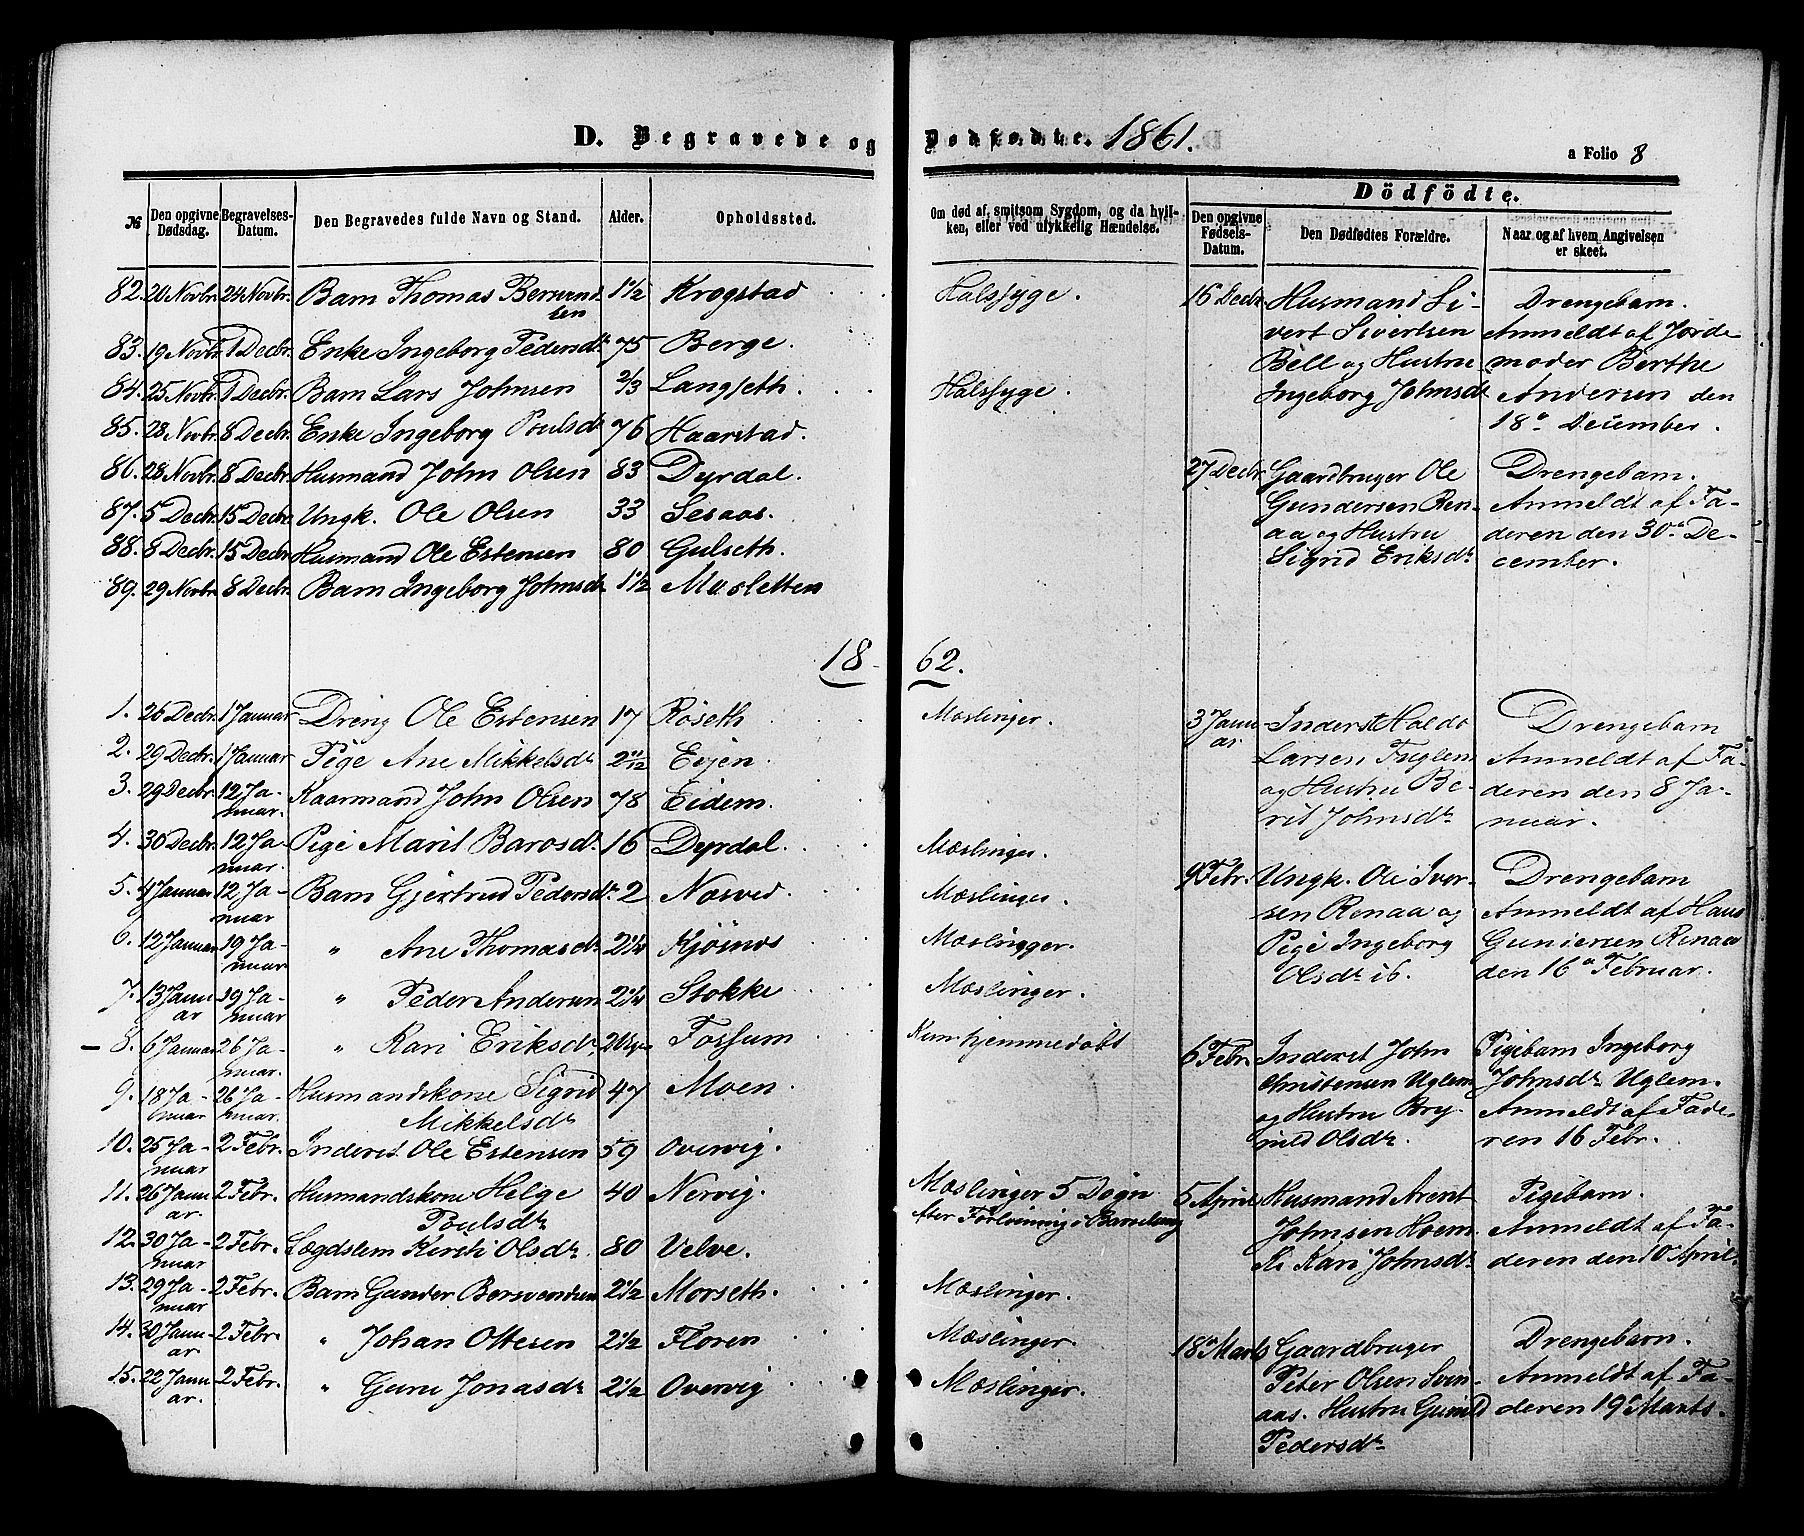 D. Begravede og Dødfødte. 1861.
a Folio 8
№
Den opgivne Dødsdag.
Begravelses-Datum.
Den Begravedes fulde Navn og Stand.
Alder.
Opholdssted.
Om død af smitsom Sygdom, og da hvilken, eller ved ulykkelig Hændelse.
Dödfödte.
Den opgivne Fødsels-Datum.
Den Dødfødtes Forældre.
Naar og af hvem Angivelsen er skeet.
82. 20 Novbr. 24 Novbr. Barn Thomas Bersvendsen 1½ Krogstad Halssyge.
83. 19 Novbr. 1 Decbr. Enke Ingeborg Pedersdr. 75 Berge.
84. 25 Novbr. 1 Decbr. Barn Lars Johnsen 2/3 Langseth. Halssyge.
85. 28 Novbr. 8 Decbr. Enke Ingeborg Poulsdr. 76 Haarstad.
86. 28 Novbr. 8 Decbr. Husmand John Olsen 83 Dyrdal.
87. 5 Decbr. 15 Decbr. Ungk. Ole Olsen 33 Sesaas.
88. 8 Decbr. 15 Decbr. Husmand Ole Estensen 80 Gulseth.
89. 29 Novbr. 8 Decbr. Barn Ingeborg Johnsdr. 1½ Mosletten
18 62.
1. 26 Decbr. 1 Januar Dreng Ole Estensen 17 Röseth Mæslinger.
2. 29 Decbr. 1 Januar Pige Ane Mikkelsdr. 2 11/12 Evjen
3. 29 Decbr. 12 Januar. Kaarmand John Olsen 78 Eidem.
4. 30 Decbr. 12 Januar. Pige Marit Barosdr. 16 Dyrdal. Mæslinger.
5. 4 Januar 12 Januar Barn Gjertrud Pedersdr. 2 Nosved Mæslinger.
6. 12 Januar 19 Januar " Ane Thomasdr. 2¼ Kjösnos Mæslingger.
7. 13 Januar 19 Januar " Peder Andersen 2¼ Stokke Mæslinger.
8. 6 Januar 26 Januar. " Kari Eriksdr. Fossum Kun hjemmedøbt
9. 18 Januar 26 Januar. Husmandskone Sigrid Mikkelsdr 47 Moen.
10. 25 Januar 2 Febr. Inderst Ole Estensen 59 Overvig.
11. 26 Januar. 2 Febr. Husmandskone Helge Poulsdr. 40 Nervig. Mæslinger 5 Dögn efter Forlösning i Barselseng
12. 30 Januar 2 Febr. Lægdslem Kirsti Olsdr. 80 Velve.
13. 29 Januar 2 Febr. Barn Gunder Bersvendsen 2½ Morseth. Mæslinger.
14. 30 Januar 2 Febr. " Johan Ottesen 2½ Floren Mæslinger.
15. 22 Januar. 2 Febr. " Guru Jonasdr. 2½ Overvig Mæslinger.
16 Decbr.
Husmand Si-
vert Sivertsen
Bell og Hustru
Ingeborg Johnsdr.
Drengebarn.
Anmeldt af Jorde
moder Berthe
Andersen den
18de December.
27 Decbr.
Gaardbruger Ole
Gundersen Ren-
aa og Hustru
Sigrid Eriksdr.
Drengebarn.
Anmeldt af Fa-
deren den 30te De-
cember.
3 Januar
Inderst Haldo
Larsen Fuglem
og Hustru Be-
rit Johnsdr.
Drengebarn
Anmeldt af Fa-
deren den 8 Ja-
nuar.
9 Febr.
Ungk. Ole Iver-
sen Renaa og
Pige Ingeborg
Olsdr. ib.
Drengebarn
Anmeldt af Hans
Gundersen Renaa
den 16de Februar.
6 Febr.
Inderst John
Christensen Uglem
og Hustru Bry-
nild Olsdr.
Pigebarn Ingeborg
Johnsdr. Uglem.
Anmeldt af Fade-
ren 16 Febr.
5 April
Husmand Arent
Johnsen Hoem
Kari Johnsdr.
Pigebarn.
Anmeldt af Fa-
deren den 10 April.
18de Marts
Gaardbruger
Peter Olsen Svin-
aas. Hustru Gunild
Pedersdr.
Drengebarn.
Anmeldt af Fa-
deren 19de Marts.